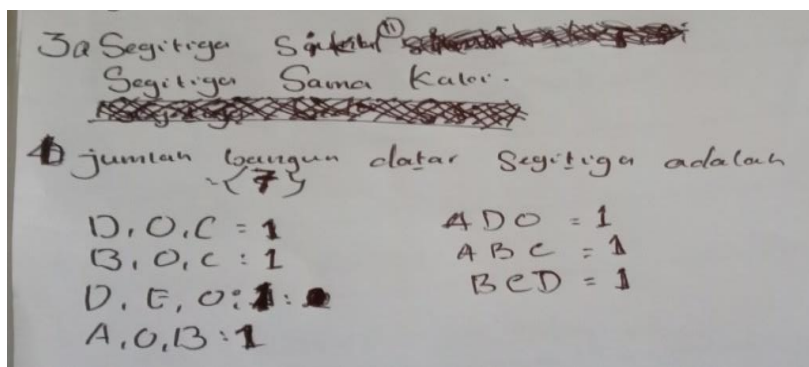 3a Segitiga
Segitiga Sama Kaki.
b jumlah bangun datar Segitiga adalah
{7}
D, O, C = 1
B, O, C : 1
D, E, O : 1 :
A, O, B : 1
ADO = 1
ABC = 1
BCD = 1